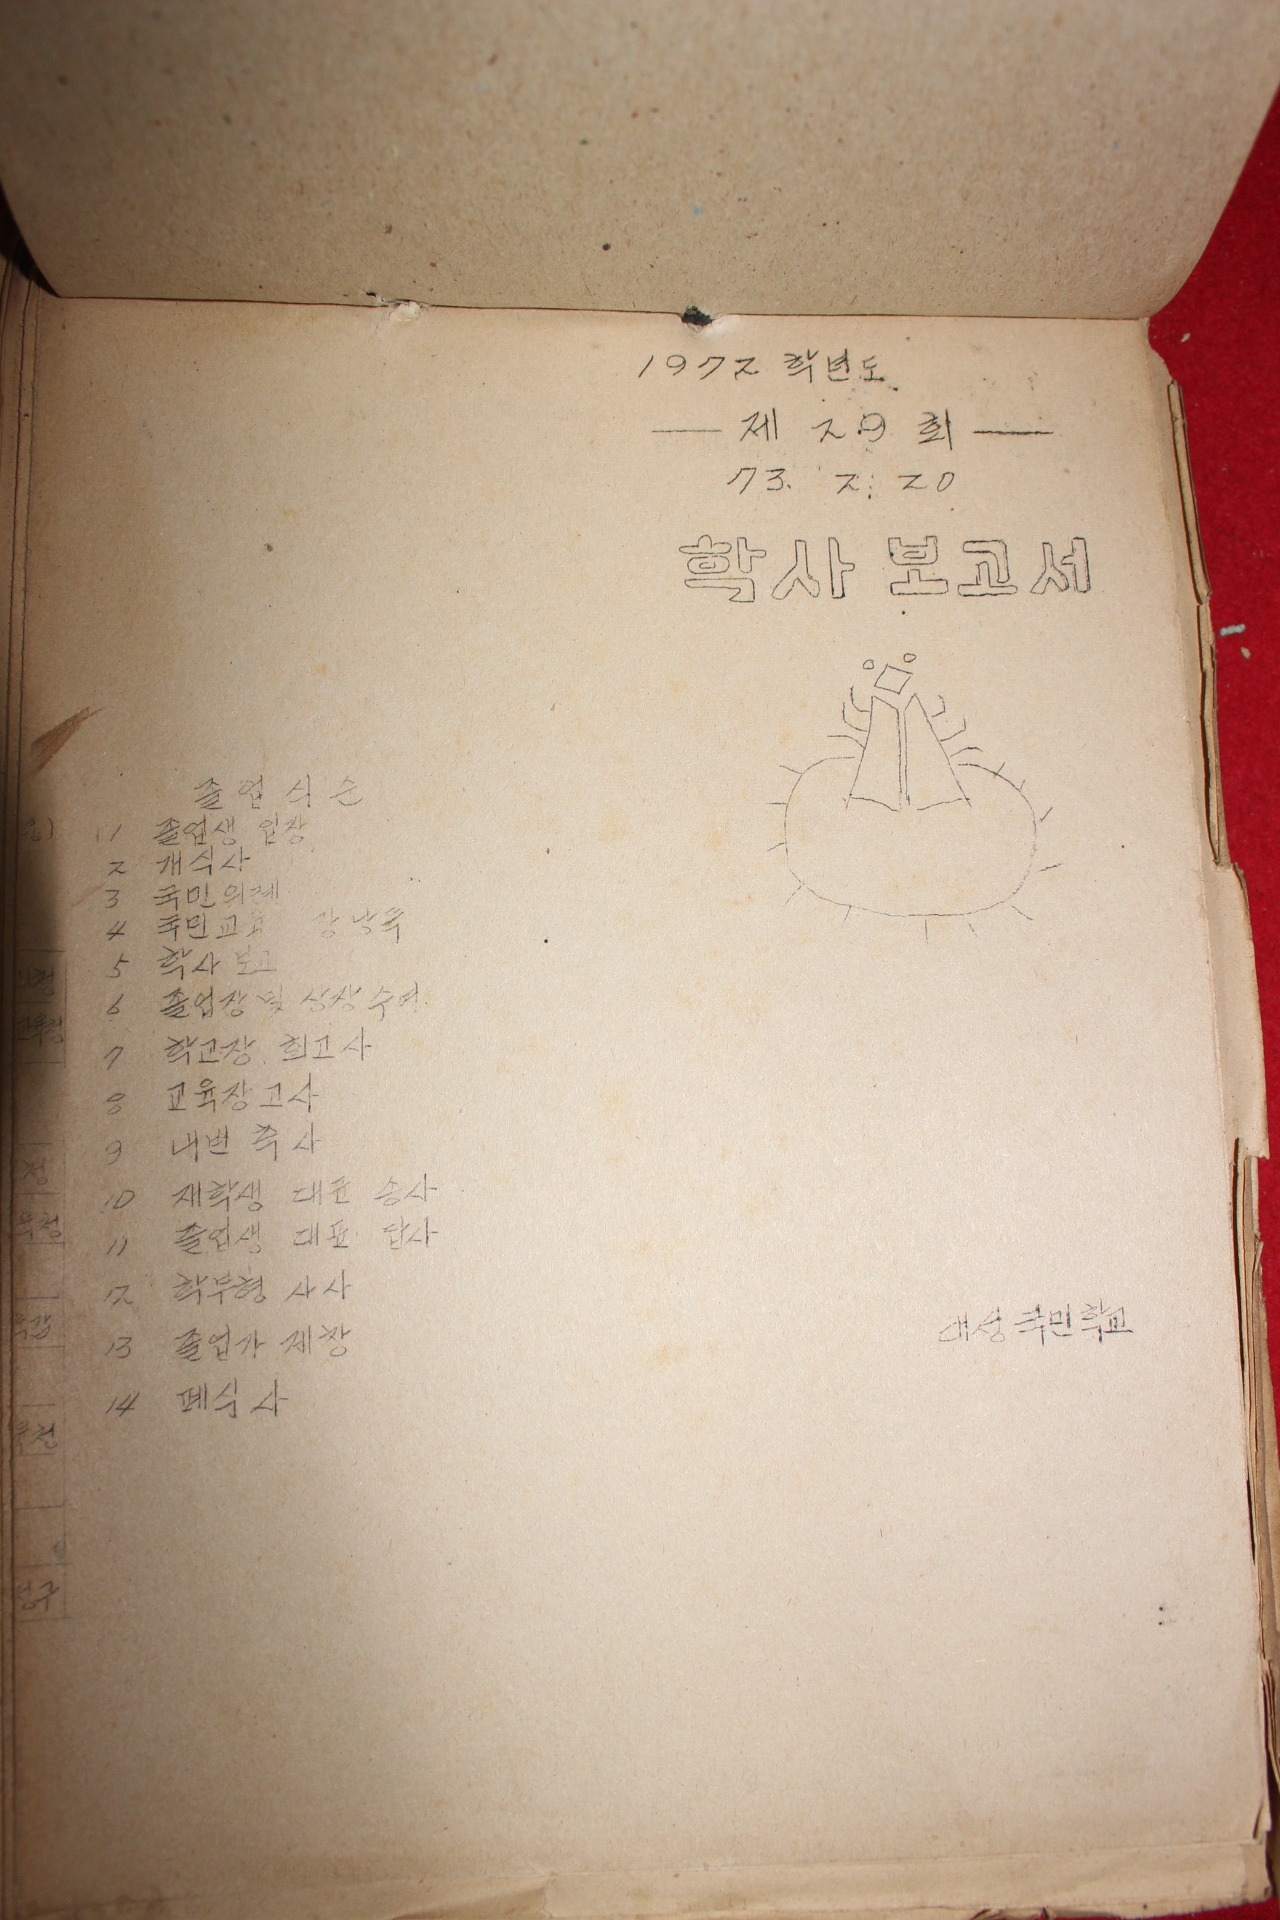 1972 학년도
— 제 29 회 —
73. 2. 20
학사 보고서
졸업식순
1 졸업생 입장
2 개식사
3 국민의례
4 국민교
5 학사 보고
6 졸업장 및 상장 수여
7 학교장 회고사
8 교육장 고사
9 내빈 축사
10 재학생 대표 송사
11 졸업생 대표 답사
12 학부형 사사
13 졸업가 제창
14 폐식사
대성국민학교